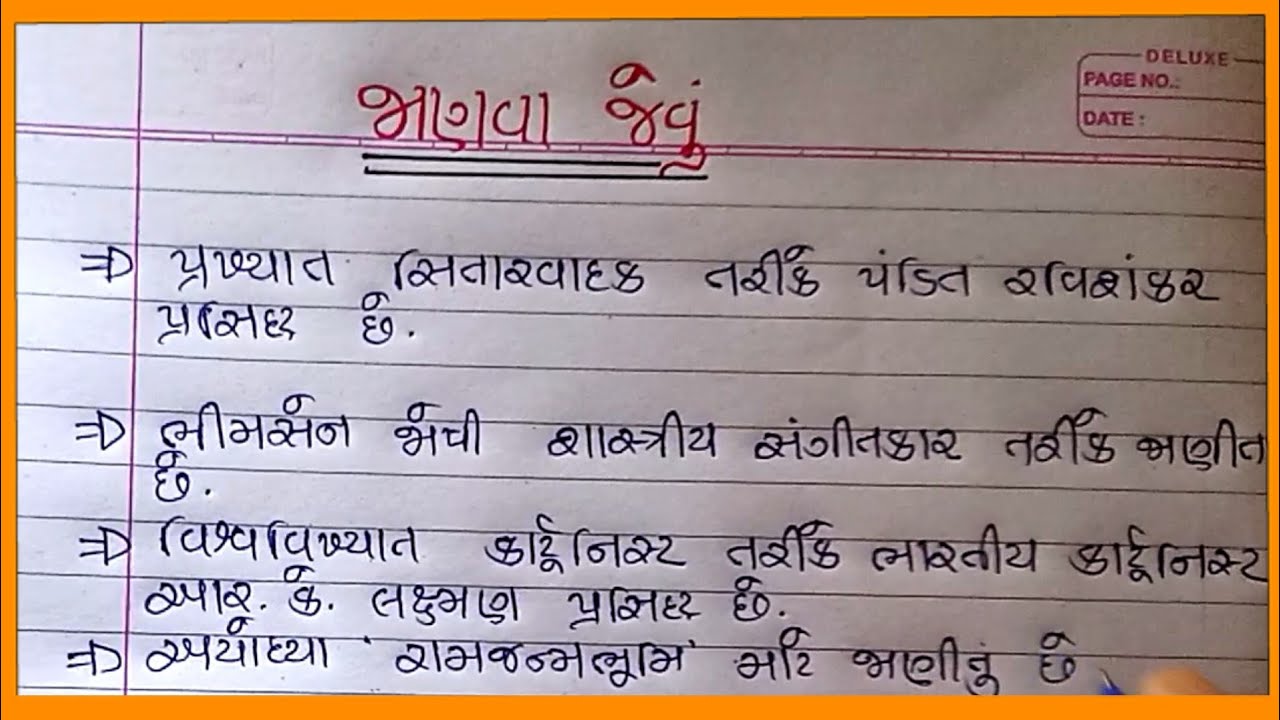 DELUXE
PAGE NO.:
DATE :
જાણવા જેવું
⇒ પ્રખ્યાત સિતારવાદક તરીકે પંડિત રવિશંકર
પ્રસિદ્ધ છે.
⇒ ભીમસેન જોષી શાસ્ત્રીય સંગીતકાર તરીકે જાણીત
છે.
⇒ વિશ્વવિખ્યાત કાર્ટૂનિસ્ટ તરીકે ભારતીય કાર્ટૂનિસ્ટ
આર. કે. લક્ષ્મણ પ્રસિદ્ધ છે.
⇒ અયોધ્યા 'રામજન્મભૂમિ' માટે જાણીતું છે